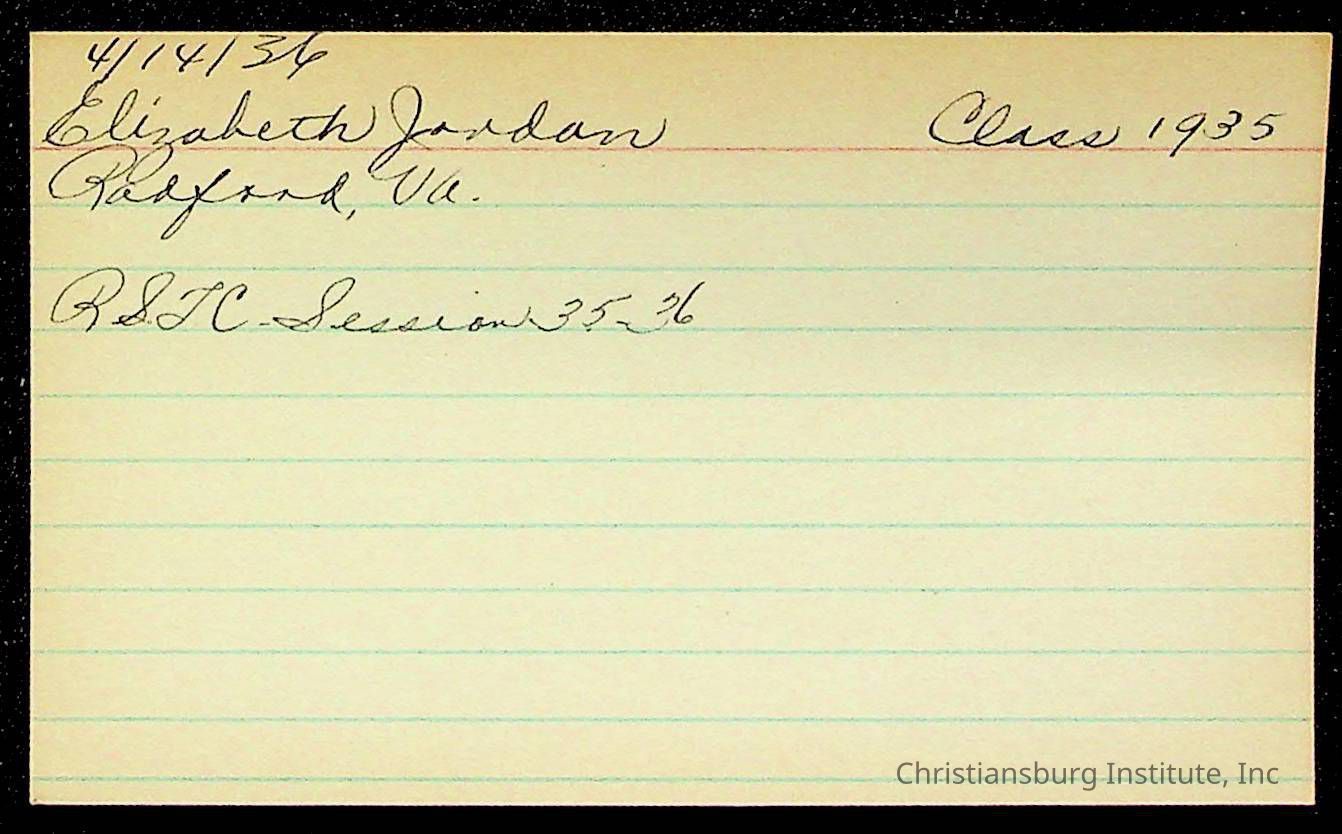 4/14/36
Elizabeth Jordan Class 1935
Radford, Va.
R.S.T.C - Session 35-36
Christiansburg Institute, Inc